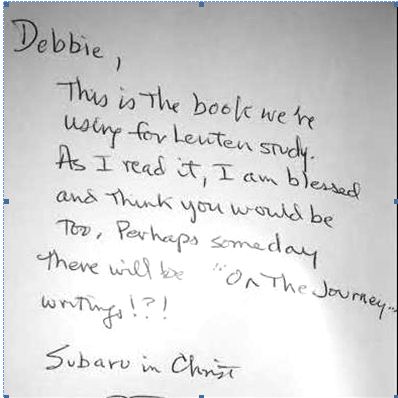 Debbie,
This is the book we're
using for Lenten study.
As I read it, I am blessed
and think you would be
too, Perhaps someday
there will be "On The Journey...
writings!?!
Subaru in Christ